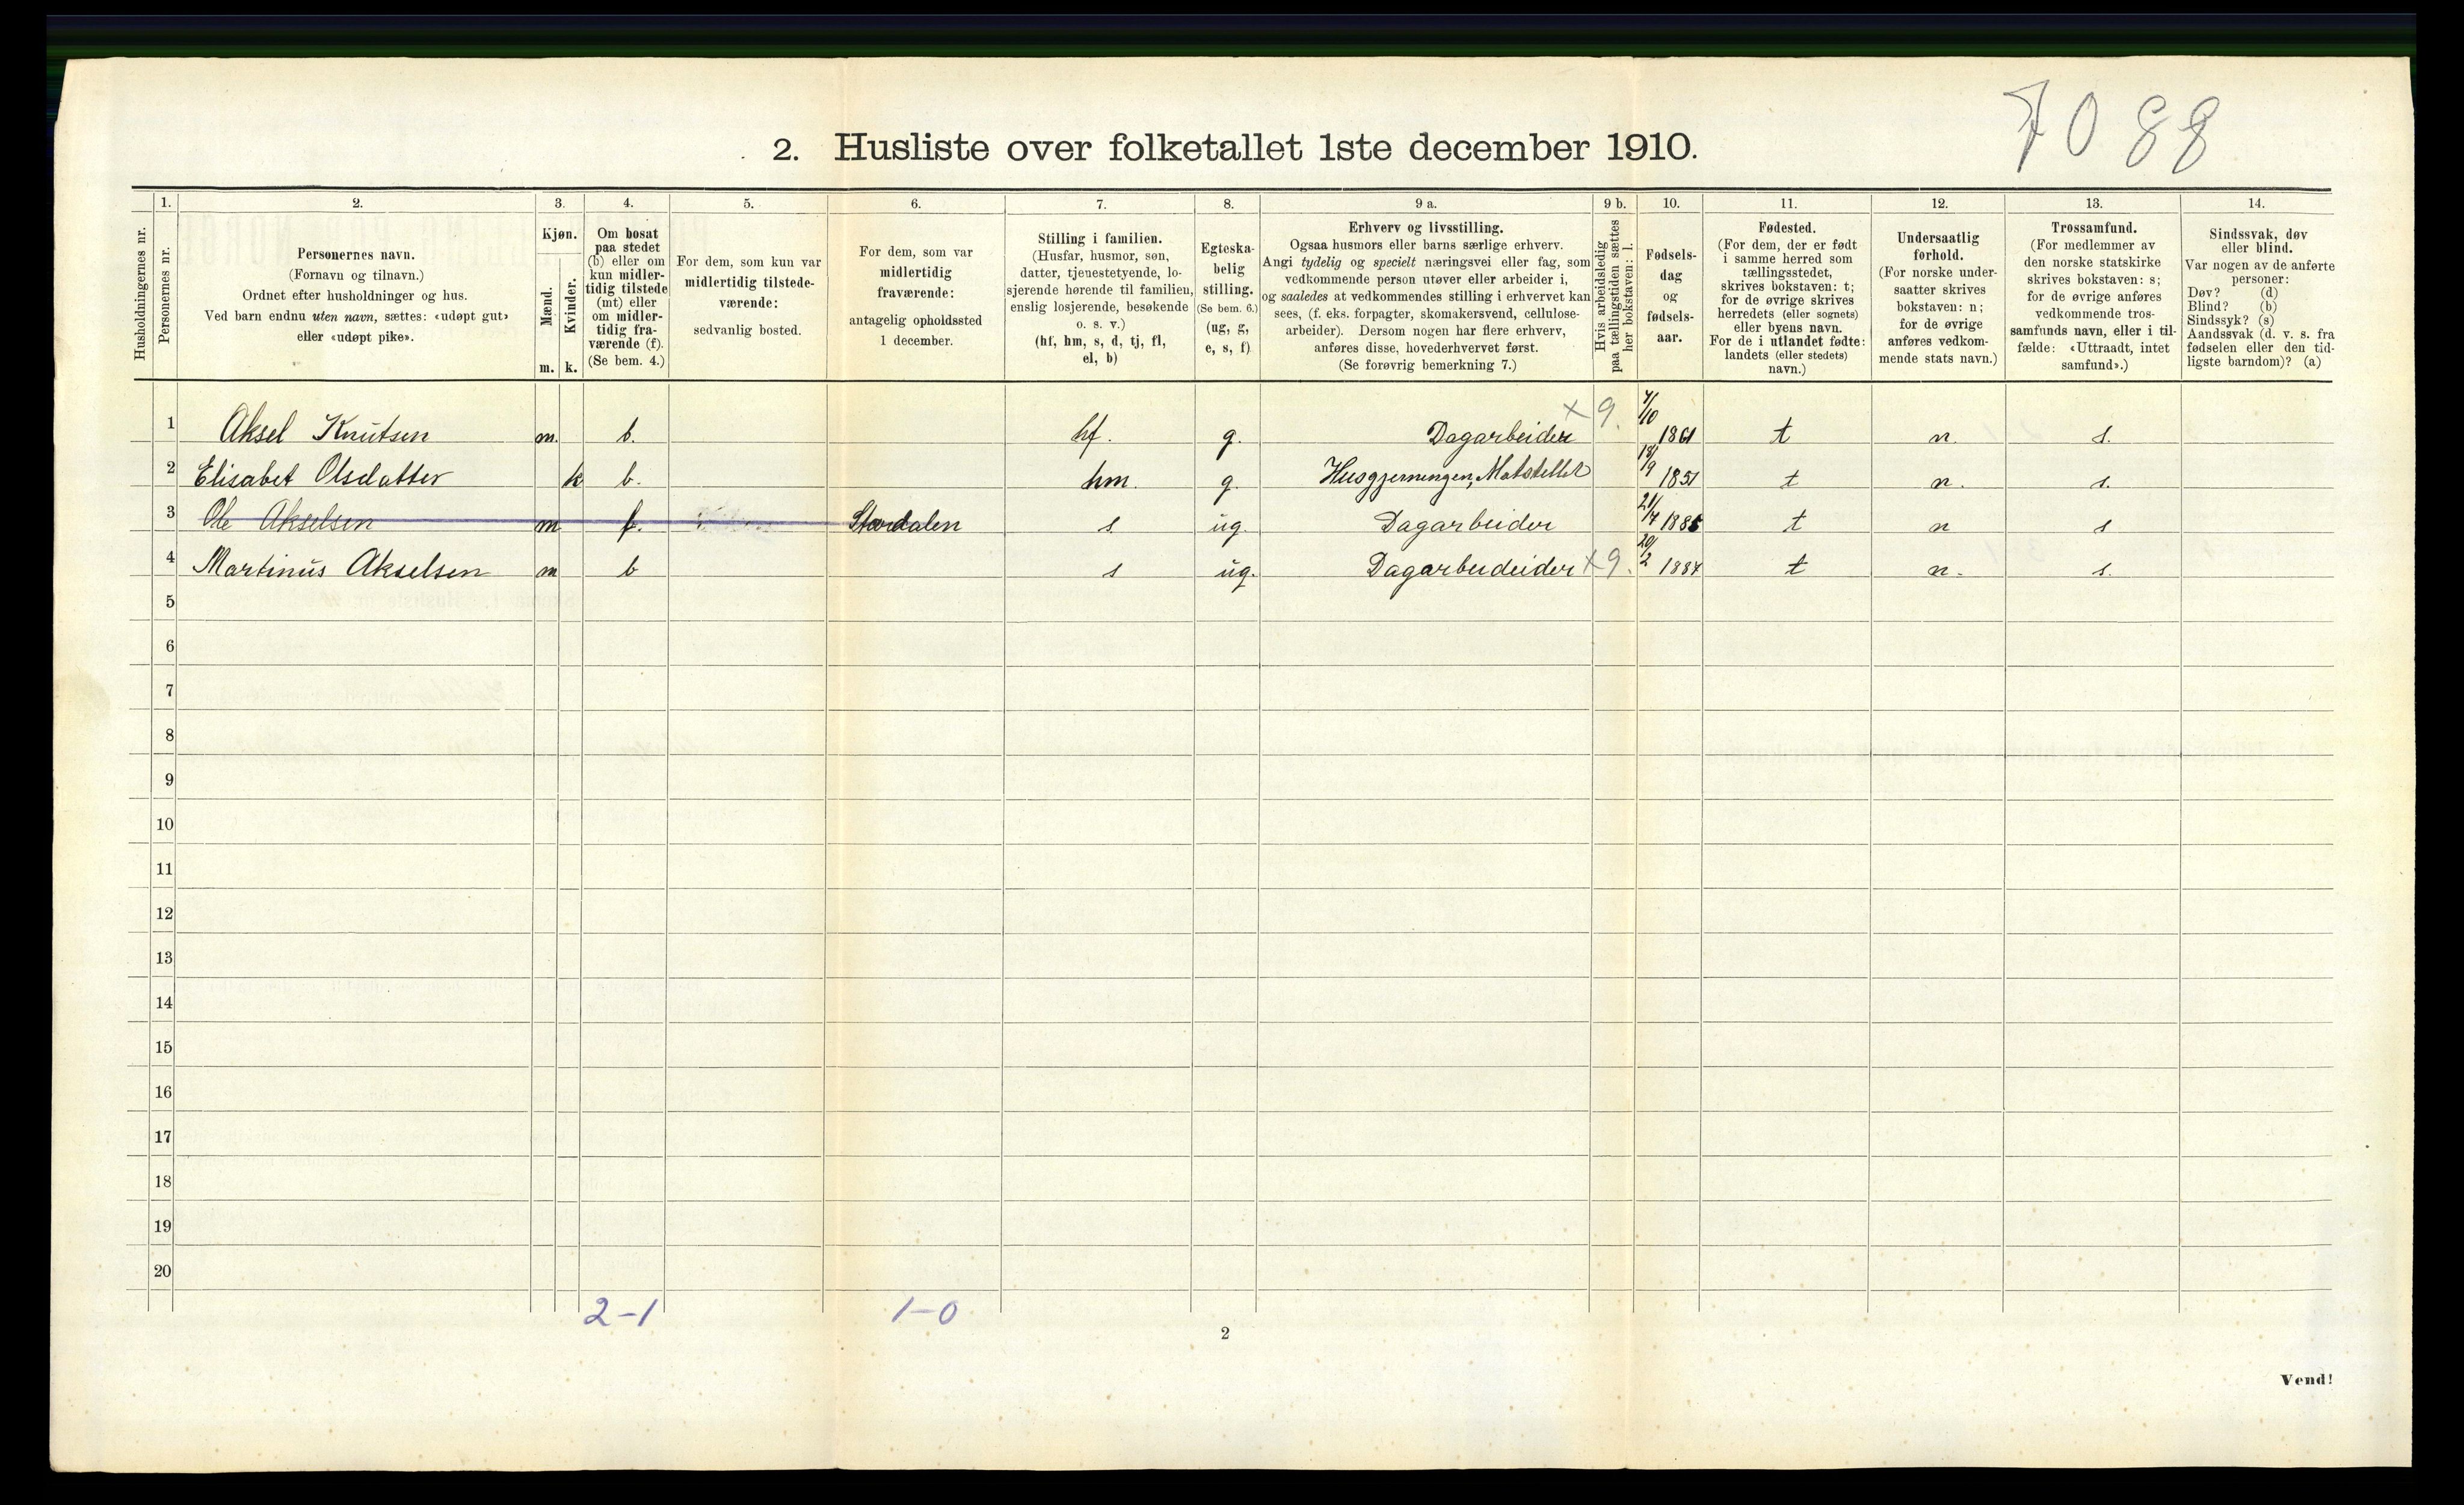 7088
2. Husliste over folketallet 1ste december 1910.
Husholdningernes nr.
1. Personernes nr.
2. Personernes navn.
(Fornavn og tilnavn.)
Ordnet efter husholdninger og hus.
Ved barn endnu uten navn, sættes: «udøpt gut»
eller «udøpt pike».
3. Kjøn.
Mænd. m.
Kvinder. k.
4. Om bosat
paa stedet
(b) eller om
kun midler-
tidig tilstede
(mt) eller
om midler-
tidig fra-
værende (f).
(Se bem. 4.)
5. For dem, som kun var
midlertidig tilstede-
værende:
sedvanlig bosted.
6. For dem, som var
midlertidig
fraværende:
antagelig opholdssted
1 december.
7. Stilling i familien.
(Husfar, husmor, søn,
datter, tjenestetyende, lo-
sjerende hørende til familien,
enslig losjerende, besøkende
o. s. v.)
(hf, hm, s, d, tj, fl,
el, b)
8. Egteska-
belig
stilling.
(Se bem. 6.)
(ug, g,
e, s, f)
9 a. Erhverv og livsstilling.
Ogsaa husmors eller barns særlige erhverv.
Angi tydelig og specielt næringsvei eller fag, som
vedkommende person utøver eller arbeider i,
og saaledes at vedkommendes stilling i erhvervet kan
sees, (f. eks. forpagter, skomakersvend, cellulose-
arbeider). Dersom nogen har flere erhverv,
anføres disse, hovederhvervet først.
(Se forøvrig bemerkning 7.)
9 b. Hvis arbeidsledig
paa tællingstiden sættes
her bokstaven: l.
10. Fødsels-
dag
og
fødsels-
aar.
11. Fødested.
(For dem, der er født
i samme herred som
tællingsstedet,
skrives bokstaven: t;
for de øvrige skrives
herredets (eller sognets)
eller byens navn.
For de i utlandet fødte:
landets (eller stedets)
navn.)
12. Undersaatlig
forhold.
(For norske under-
saatter skrives
bokstaven: n;
for de øvrige
anføres vedkom-
mende stats navn.)
13. Trossamfund.
(For medlemmer av
den norske statskirke
skrives bokstaven: s;
for de øvrige anføres
vedkommende tros-
samfunds navn, eller i til-
fælde: «Uttraadt, intet
samfund».)
14. Sindssvak, døv
eller blind.
Var nogen av de anførte
personer:
Døv? (d)
Blind? (b)
Sindssyk? (s)
Aandssvak (d. v. s. fra
fødselen eller den tid-
ligste barndom)? (a)
1 Aksel Knutsen m. b. hf. g. Dagarbeider x 9. 4/10 1861 t n. s.
2 Elisabet Olsdatter k b. hm. g. Husgjerningen, Matstellet 18/9 1851 t n. s.
3 Ole Akselsen m f. Stordalen s ug. Dagarbeider 21/7 1885 t n s
4 Martinus Akselsen m b s ug. Dagarbeideider x 9. 20/2 1887 t n. s.
5
6
7
8
9
10
11
12
13
14
15
16
17
18
19
20
2-1 1-0
2
Vend!